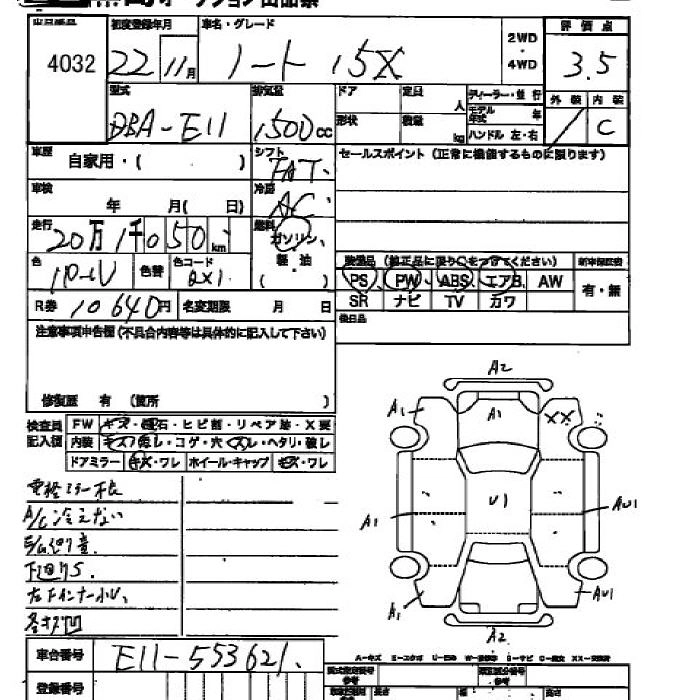 出品番号 初度登録年月 車名・グレード 2WD 評価点
4032 22 11月 ノート 15X ・ 4WD 3.5
型式 排気量 ドア 定員 人 ディーラー・並行 外装 内装
DBA-E11 1500cc 形状 積載 kg モデル年式 年 ハンドル 左・右 C
車歴 自家用・( ) シフト FAT セールスポイント (正常に機能するものに限ります)
車検 年 月( 日) 冷房 AC
走行 20万1千050km 燃料 ガソリン・
軽油
色 色替 色コード ( ) 装備品 (純正品に限り○をつけてください) 新車保証書
PS PW ABS エアB AW 有・無
R券 10640円 名変期限 月 日 SR ナビ TV カワ
注意事項申告欄(不具合内容等は具体的に記入して下さい) 後日品
修復歴 有 (箇所 )
検査員 FW キズ・飛石・ヒビ割・リペア跡・X要
記入欄 内装 キズ・汚レ・コゲ・穴・スレ・ヘタリ・破レ
ドアミラー キズ・ワレ ホイール・キャップ キズ・ワレ
A2
A1 A1 XX
電格ミラー不良
A/C冷えない
下回りS
A1 U1 AU1
A1 AU1
A2
車台番号 E11-553621
登録番号